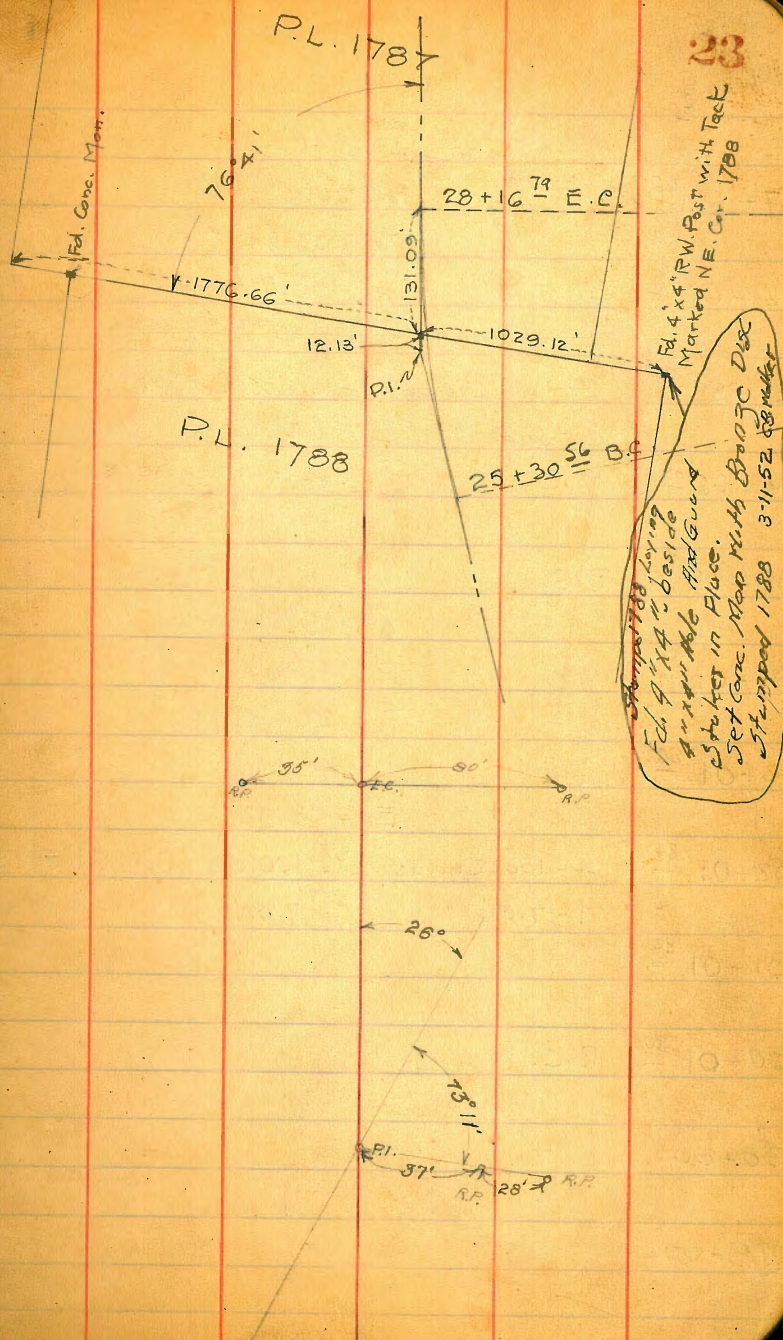 23
P.L. 178
76° 41'
Fd. Conc. Mon.
28+16 79 E.C.
131.09'
1776.66'
1029.12'
12.13'
P.I.
Fd. 4"x4" RW. Post with Tack
Marked NE. Cor. 1788
P.L. 1788
25+30 56 B.C
Stamped 1788
Fd. 4"x4" Laying
beside
4"x4" Hole And Guard
Stakes in Place.
Set Conc. Mon With Bronze Disk
Stamped 1788 3-11-52
35'
80'
R.P.
E.C.
R.P.
26°
73° 11'
P.I.
37'
R.P.
28'
R.P.